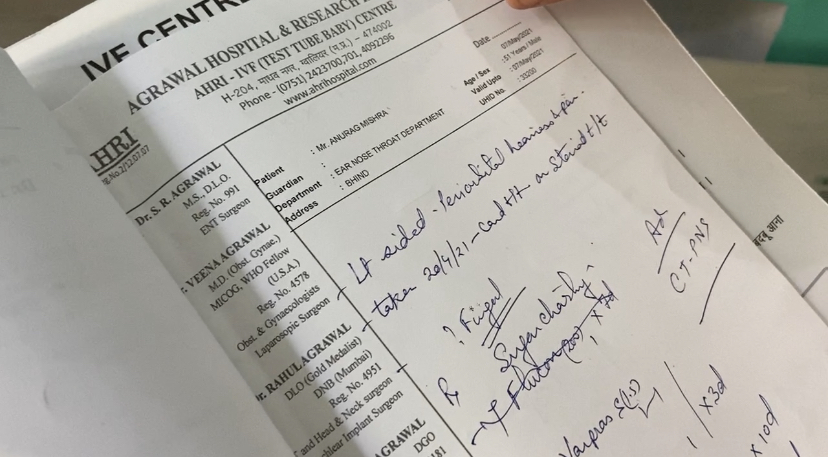 IVF CENTRE
AGRAWAL HOSPITAL & RESEARCH
AHRI - IVF (TEST TUBE BABY) CENTRE
H-204, माधव नगर, ग्वालियर (म.प्र.) - 474002
Phone - (0751) 2423700,701, 4092296
www.ahrihospital.com
AHRI
Dr. S. R. AGRAWAL
M.S., D.L.O.
Reg. No. 991
ENT Surgeon
VEENA AGRAWAL
M.D. (Obst. Gynae.)
MICOG, WHO Fellow
(U.S.A.)
Reg. No. 4578
Obst. & Gynaecologists
Laparosopic Surgeon
RAHUL AGRAWAL
DLO (Gold Medalist)
DNB (Mumbai)
Reg. No. 4951
and Head & Neck surgeon
Implant Surgeon
AGRAWAL
DGO
Patient : Mr. ANURAG MISHRA
Guardian :
Department : EAR NOSE THROAT DEPARTMENT
Address : BHIND
Date : 07/May/2021
Age / Sex : 51 Years / Male
Valid Upto : 07/May/2021
UHID No. : 33200
Lt sided - Periorbital heaviness & pain
taken 20/4/21 - on Steroid
Ad
CT-PNS
? Fungal
Rx
(200) x 3d
x 3d
x 10d